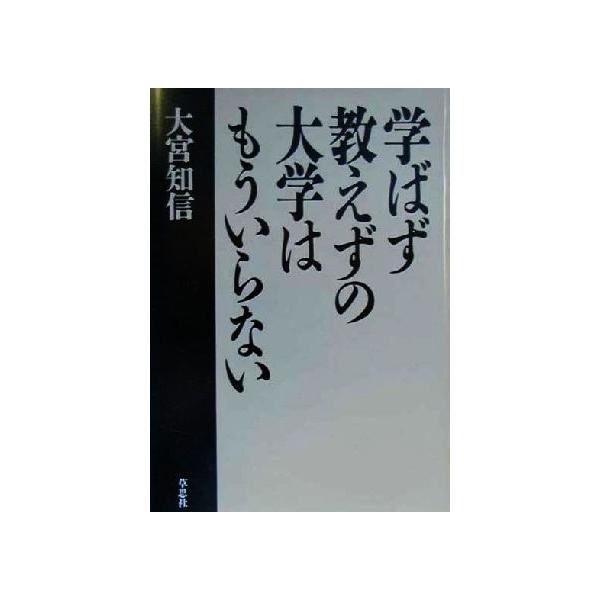 学ばず
教えずの
大学は
もういらない
大宮知信
草思社